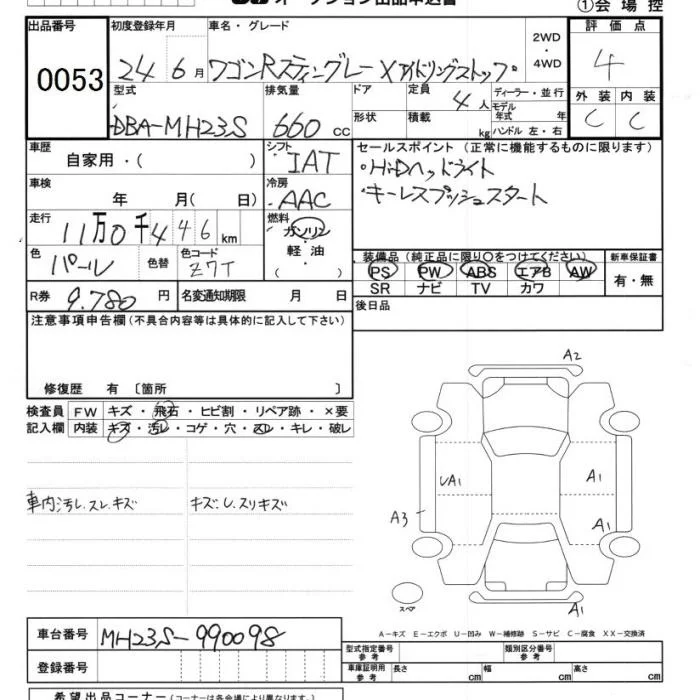 オークション出品申込書
①会場控
出品番号 初度登録年月 車名・グレード 2WD ・ 4WD 評価点
0053 24年6月 ワゴンRスティングレー X アイドリングストップ 4
型式 排気量 ドア 定員 4人 ディーラー・並行 外装 内装
DBA-MH23S 660cc 形状 積載 kg モデル年式 年 ハンドル 左・右 C C
車歴 自家用・( ) シフト IAT セールスポイント (正常に機能するものに限ります)
車検 年 月( 日) 冷房 AAC ・HiDヘッドライト
・キーレスプッシュスタート
走行 11万0千446km 燃料 ガソリン
軽油
( )
色 パール 色替 色コード Z7T 装備品 (純正品に限り〇をつけてください) 新車保証書
PS PW ABS エアB AW 有・無
SR ナビ TV カワ
R券 9.780円 名変通知期限 月 日 後日品
注意事項申告欄(不具合内容等は具体的に記入して下さい)
修復歴 有 〔箇所 〕
検査員 FW キズ・飛石・ヒビ割・リペア跡・×要
記入欄 内装 キズ・汚レ・コゲ・穴・スレ・キレ・破レ
車内汚レ.スレ.キズ キズ:U.スリキズ
A2
UA1 A1
A3 A1
スペア A1
A-キズ E-エクボ U-凹み W-補修跡 S-サビ C-腐食 XX-交換済
車台番号 MH23S-990098
型式指定番号 参考 類別区分番号 参考
登録番号 車庫証明用 参考 長さ cm 幅 cm 高さ cm
希望出品コーナー (コーナーは各会場により異なります。)